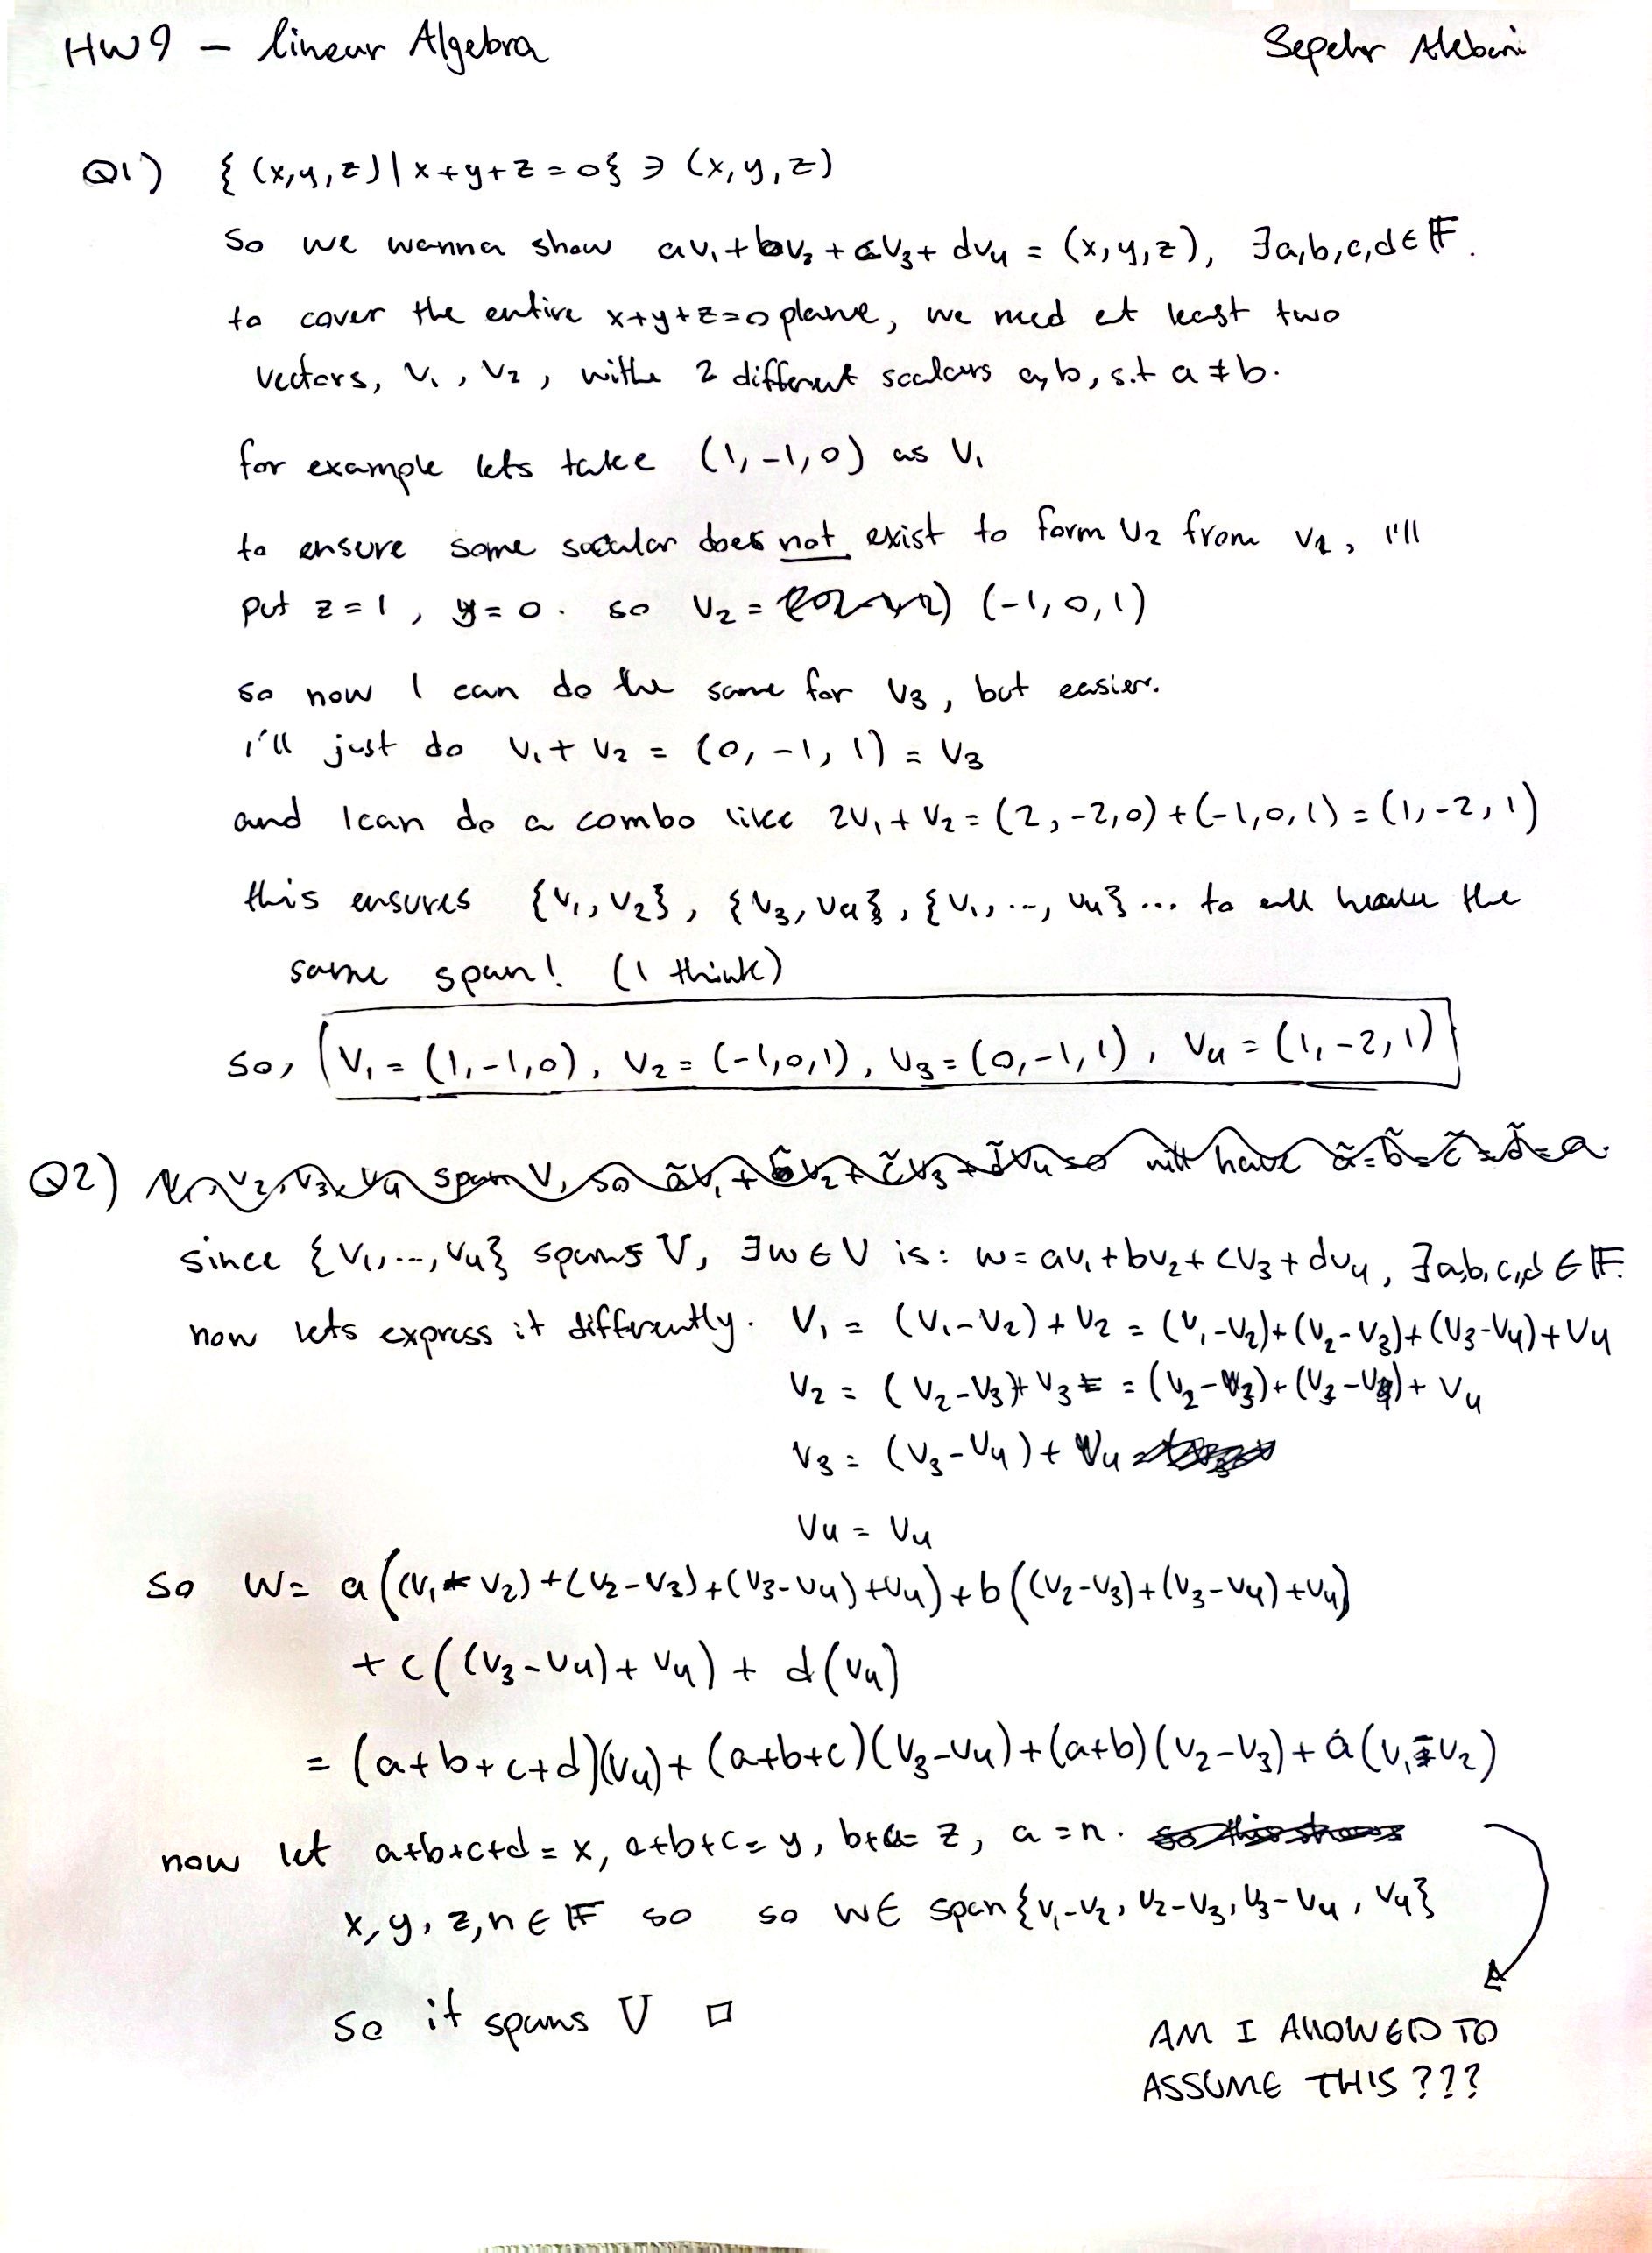 HW9 – linear Algebra
Sepehr Akbari
Q1) { (x,y,z) | x+y+z=0} ∋ (x,y,z)
So we wanna show av₁+bv₂+cv₃+dv₄ = (x,y,z), ∃a,b,c,d∈𝔽.
to cover the entire x+y+z=0 plane, we need at least two
vectors, v₁, v₂, with 2 different scalars a,b, s.t a≠b.
for example lets take (1,-1,0) as v₁
to ensure some scalar does not exist to form v₂ from v₁, i'll
put z=1, y=0. so v₂ = (-1,0,1)
so now I can do the same for v₃, but easier.
i'll just do v₁+v₂ = (0,-1,1) = v₃
and I can do a combo like 2v₁+v₂=(2,-2,0)+(-1,0,1)=(1,-2,1)
this ensures {v₁,v₂}, {v₃,v₄}, {v₁,...,v₄}... to all have the
same span! (I think)
so, v₁=(1,-1,0), v₂=(-1,0,1), v₃=(0,-1,1), v₄=(1,-2,1)
Q2) v₁,v₂,v₃,v₄ span V, so ãv₁+b̃v₂+c̃v₃+d̃v₄=0 will have ã=b̃=c̃=d̃=0.
since {v₁,...,v₄} spans V, ∃w∈V is: w=av₁+bv₂+cv₃+dv₄, ∃a,b,c,d∈𝔽.
now lets express it differently. v₁ = (v₁-v₂)+v₂ = (v₁-v₂)+(v₂-v₃)+(v₃-v₄)+v₄
v₂ = (v₂-v₃)+v₃ = (v₂-v₃)+(v₃-v₄)+v₄
v₃ = (v₃-v₄)+v₄
v₄ = v₄
so w= a((v₁-v₂)+(v₂-v₃)+(v₃-v₄)+v₄)+b((v₂-v₃)+(v₃-v₄)+v₄)
+ c((v₃-v₄)+v₄) + d(v₄)
= (a+b+c+d)(v₄)+(a+b+c)(v₃-v₄)+(a+b)(v₂-v₃)+a(v₁-v₂)
now let a+b+c+d=x, a+b+c=y, b+a=z, a=n. so this shows
x,y,z,n∈𝔽 so so w∈ span{v₁-v₂, v₂-v₃, v₃-v₄, v₄}
so it spans V □
AM I ALLOWED TO
ASSUME THIS???